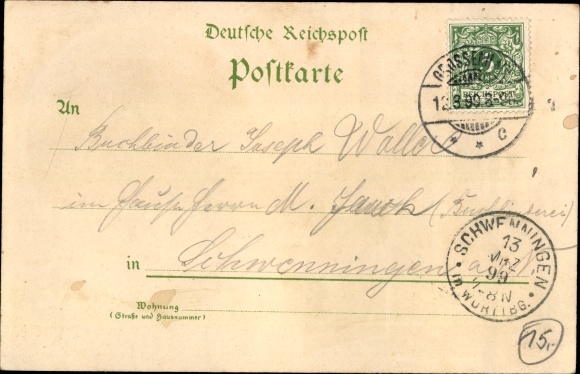 Deutsche Reichspost
Postkarte
An
Buchbinder Joseph Waller
im Hause Herrn M. Jauch (Buchbinderei)
in Schwenningen a/N
Wohnung
(Straße und Hausnummer)
REICHSPOST
12.3.99. 8-9
* * C
SCHWENNINGEN
13
MRZ
99
7-8 N
im WÜRTTBG.
15,-